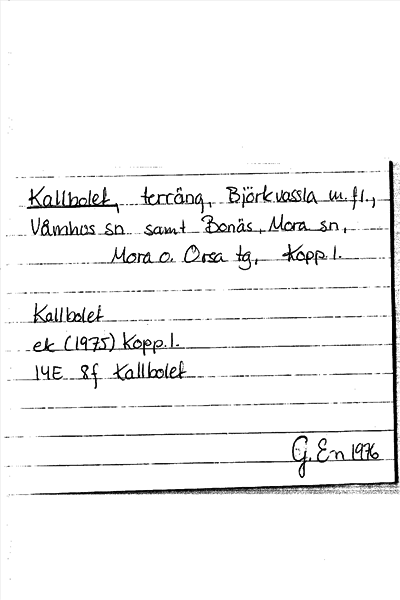 Kallbolet, terräng, Björkvassla m.fl.,
Våmhus sn samt Bonäs, Mora sn,
Mora o. Orsa tg, Kopp.l.
Kallbolet
ek (1975) Kopp.l.
14E 8f Kallbolet
G. En 1976